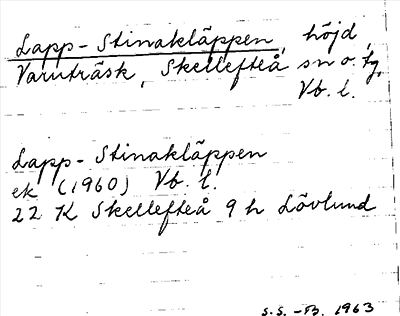 Lapp-Stinakläppen, höjd,
Varuträsk, Skellefteå sn o. tg,
Vb. l.
Lapp-Stinakläppen
ek (1960) Vb. l.
22 K Skellefteå 9 h Lövlund
S.S. -B. 1963